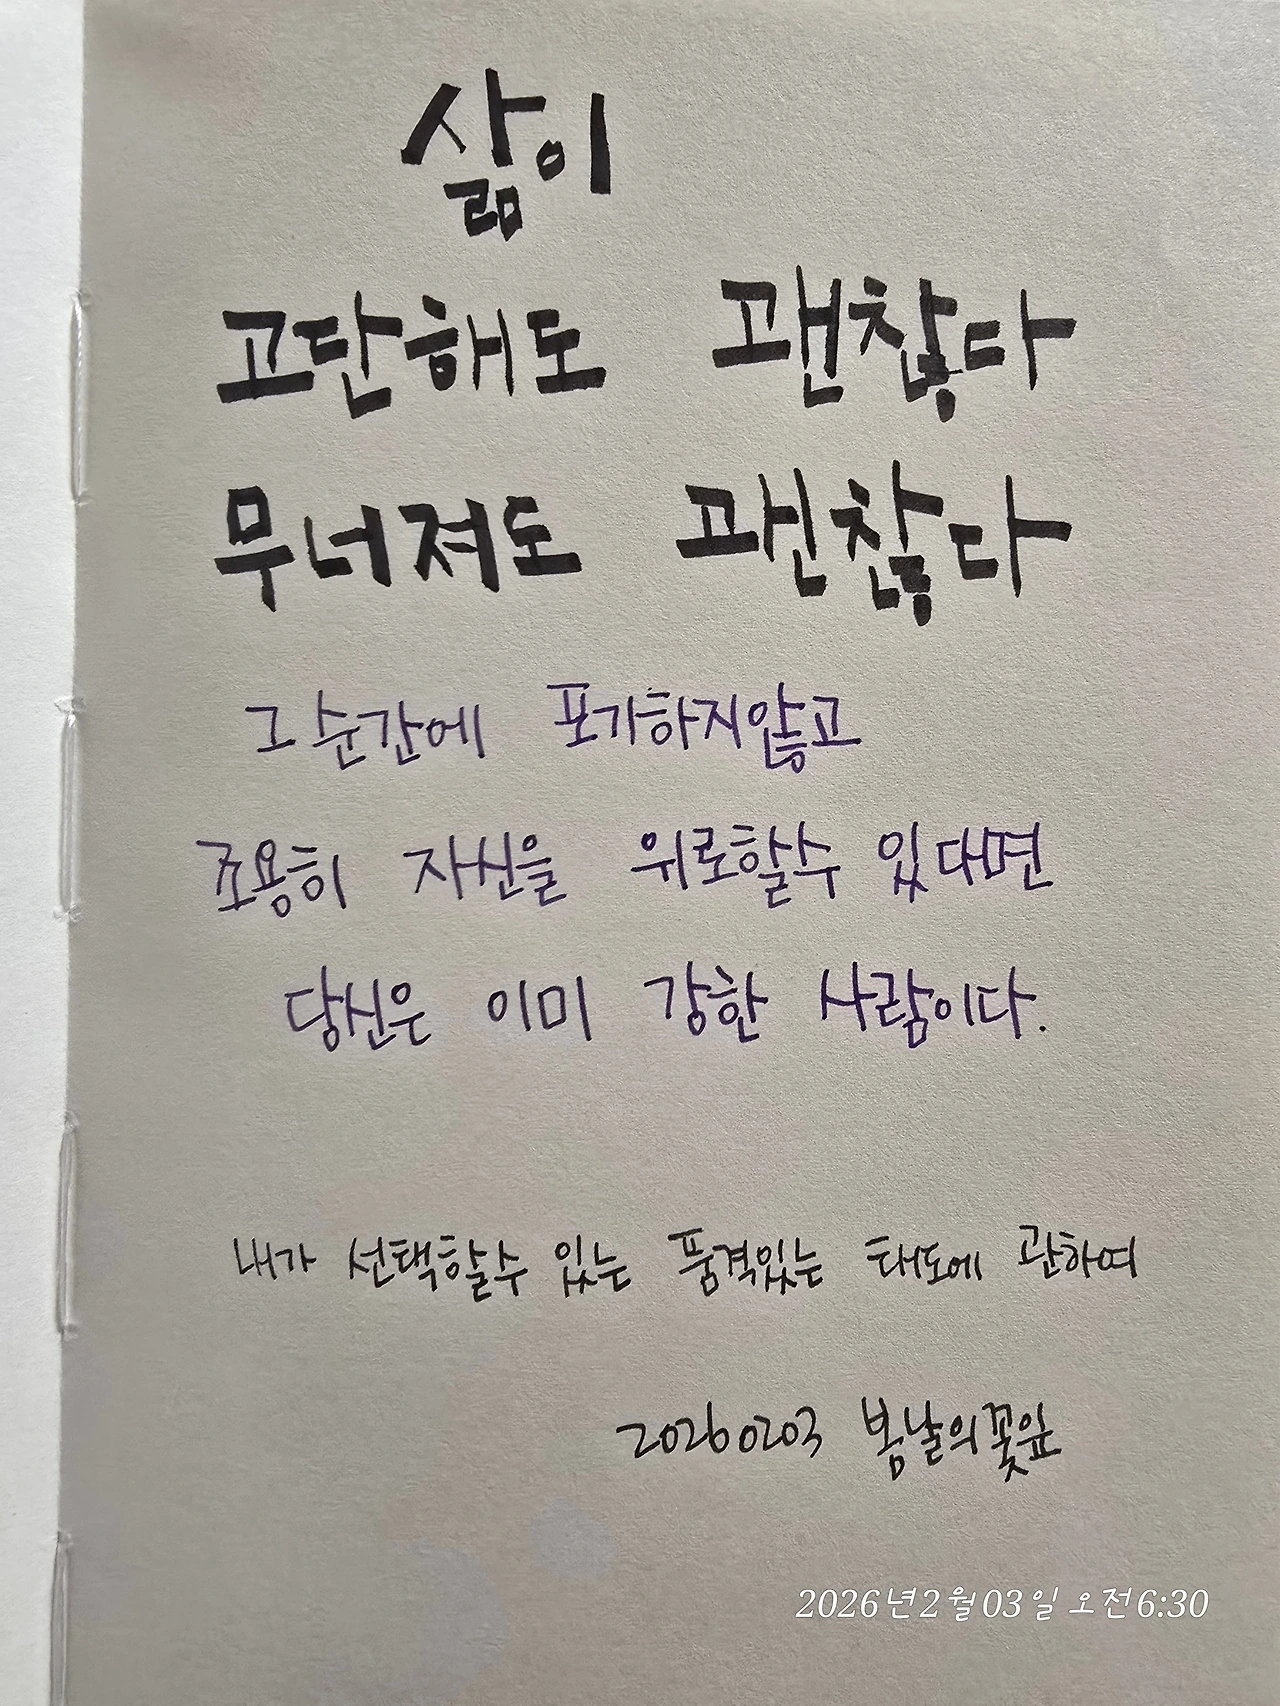 삶이
고단해도 괜찮다
무너져도 괜찮다
그 순간에 포기하지않고
조용히 자신을 위로할수 있다면
당신은 이미 강한 사람이다.
내가 선택할수 있는 품격있는 태도에 관하여
20260203 봄날의꽃잎
2026년2월03일 오전6:30